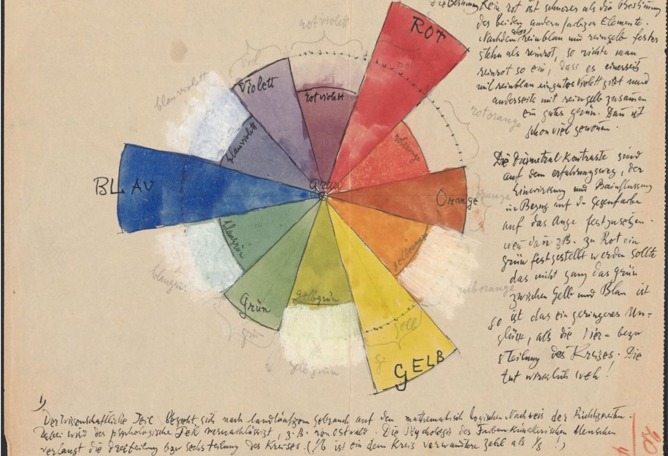 Rein rot ist schwerer als die Bestimmung
der beiden andern farbigen Elemente.
Nachdem aber reinblau und reingelb fester
stehn als reinrot, so richte man
reinrot so ein, dass es einerseits
mit reinblau ein gutes violett gibt und
anderseits mit reingelb zusammen
ein gutes
schon viel gewonnen.
Die Diametral Kontraste sind
auf dem erfahrungsweg, der
Einwirkung und Beeinflussung
in Bezug auf die Gegenfarbe
auf das Auge festzusetzen.
zu Rot ein
grün festgestellt werden sollte
das nicht ganz das grün
zwischen Gelb und Blau ist
so ist das ein geringeres Un-
glück, als die
teilung des Kreises. Die
tut wirklich weh!
ROT
rotviolett
Violett
rotviolett
blauviolett
blauviolett
rotorange
rotorange
BLAU
Grau
Orange
orange
blaugrün
blaugrün
gelborange
Grün
grün
gelbgrün
gelbgrün
gelb
GELB
1)
Der wissenschaftliche bezieht sich nach landläufigem gebrauch auf den mathematisch logischen Nachweis der Richtigkeiten.
dabei wird der psychologische vernachlässigt, z.B. von Ostwald. Die Psychologie des Farbenkünstlerischen Menschen
verlangt die Dreiteilung bzw sechsteilung des Kreises. (1/6 ist ein dem Kreis verwandtere Zahl als 1/8 !)